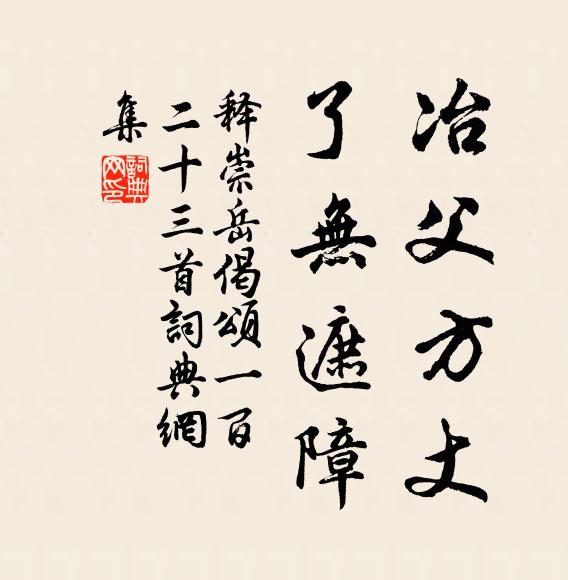 冶父方丈
了無遮障
释崇岳偈頌一百
二十三首詞典網
集
詞典网印